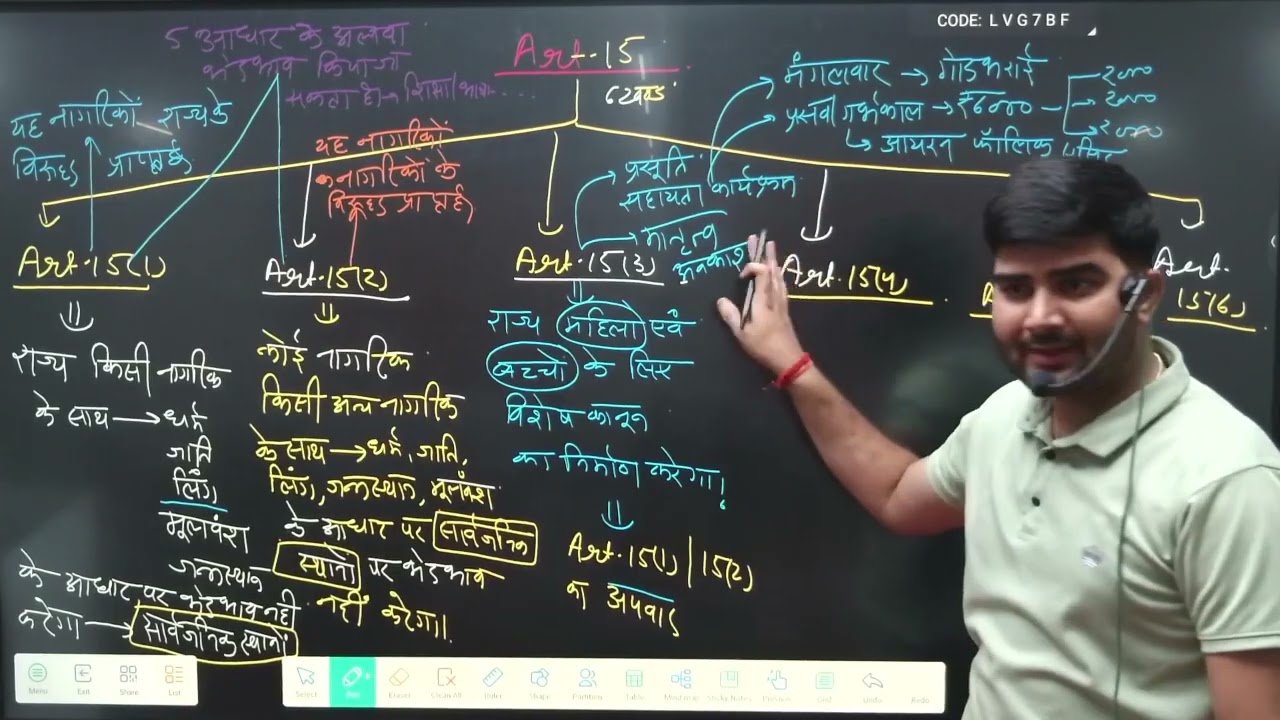 CODE: L V G 7 B F
5 आधार के अलावा
भेदभाव किया जा
सकता है → शिक्षा/भाषा....
Art-15
6 खण्ड
मंगलवार → गोडभराई
प्रसव/गर्भकाल → ₹6000
2000
2000
2000
आयरन फॉलिक एसिड
यह नागरिकों राज्य के
विरुद्ध प्राप्त है
यह नागरिकों
को नागरिकों के
विरुद्ध प्राप्त है
प्रसूति
सहायता कार्यक्रम
मातृत्व
अवकाश
Art-15(1)
राज्य किसी नागरिक
के साथ → धर्म
जाति
लिंग
मूलवंश
जन्मस्थान
के आधार पर भेदभाव नही
करेगा → सार्वजनिक स्थानों
Art-15(2)
कोई नागरिक
किसी अन्य नागरिक
के साथ → धर्म, जाति,
लिंग, जन्मस्थान, मूलवंश
के आधार पर सार्वजनिक
स्थानों पर भेदभाव
नहीं करेगा।
Art-15(3)
राज्य महिलो एवं
बच्चों के लिए
विशेष कानून
का निर्माण करेगा!
Art.15(1) | 15(2)
का अपवाद
Art-15(4)
Art.
15(6)
Menu Exit Share List
Select Pen Eraser Clean All Ruler Shape Partition Table Mind map Sticky Notes Preview Grid Undo Redo